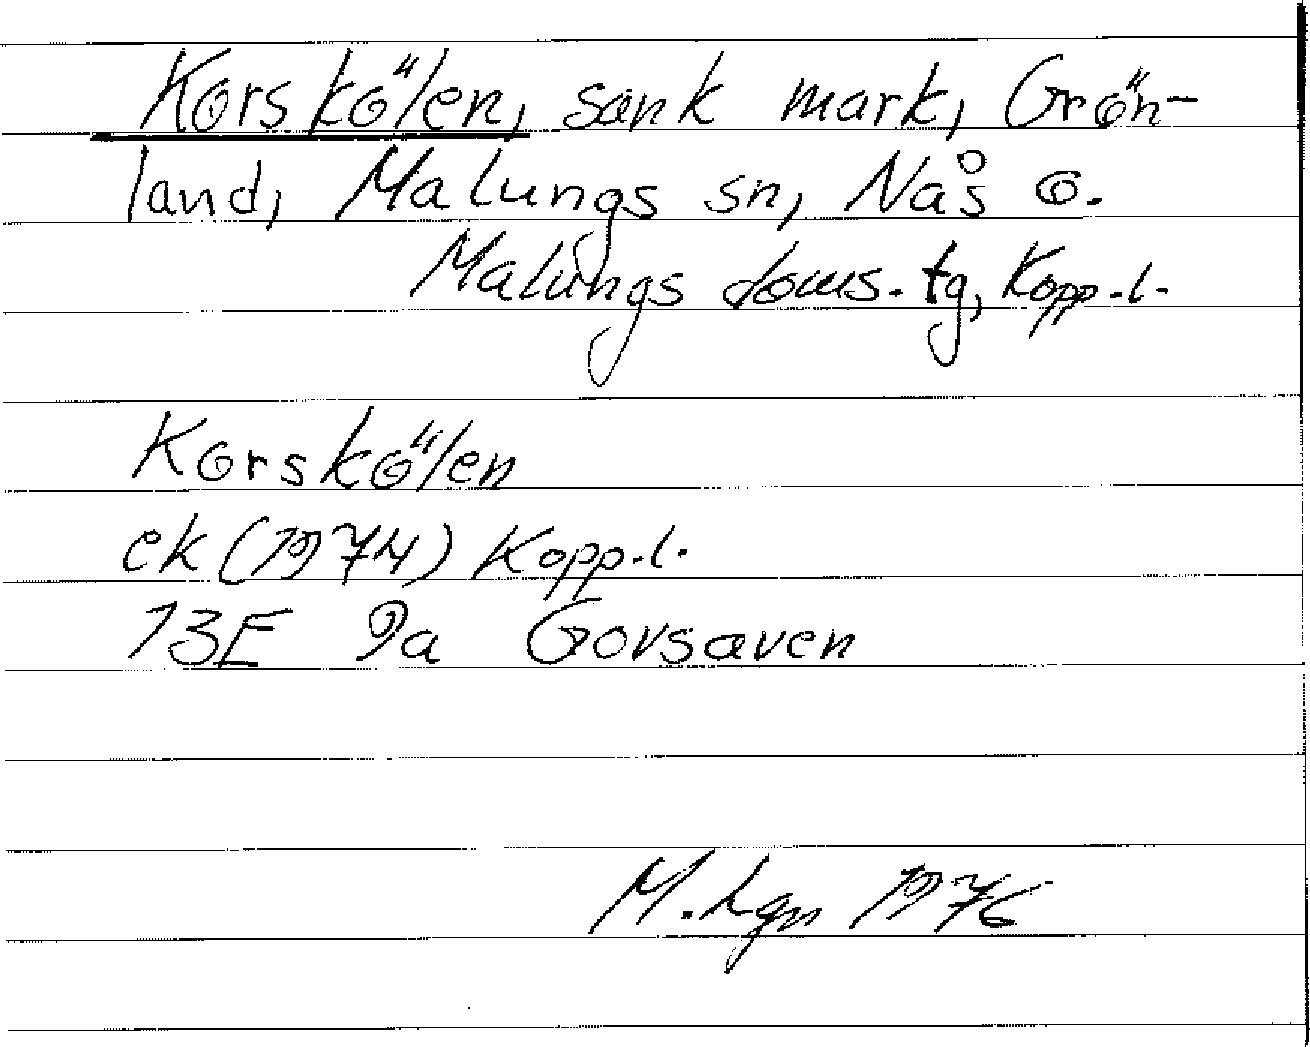 Korskölen, sank mark, Grön-
land, Malungs sn, Nås o.
Malungs doms. tg, Kopp. l.
Korskölen
ek (1974) Kopp. l.
13E 9a Gorsaven
M. Lgn 1976